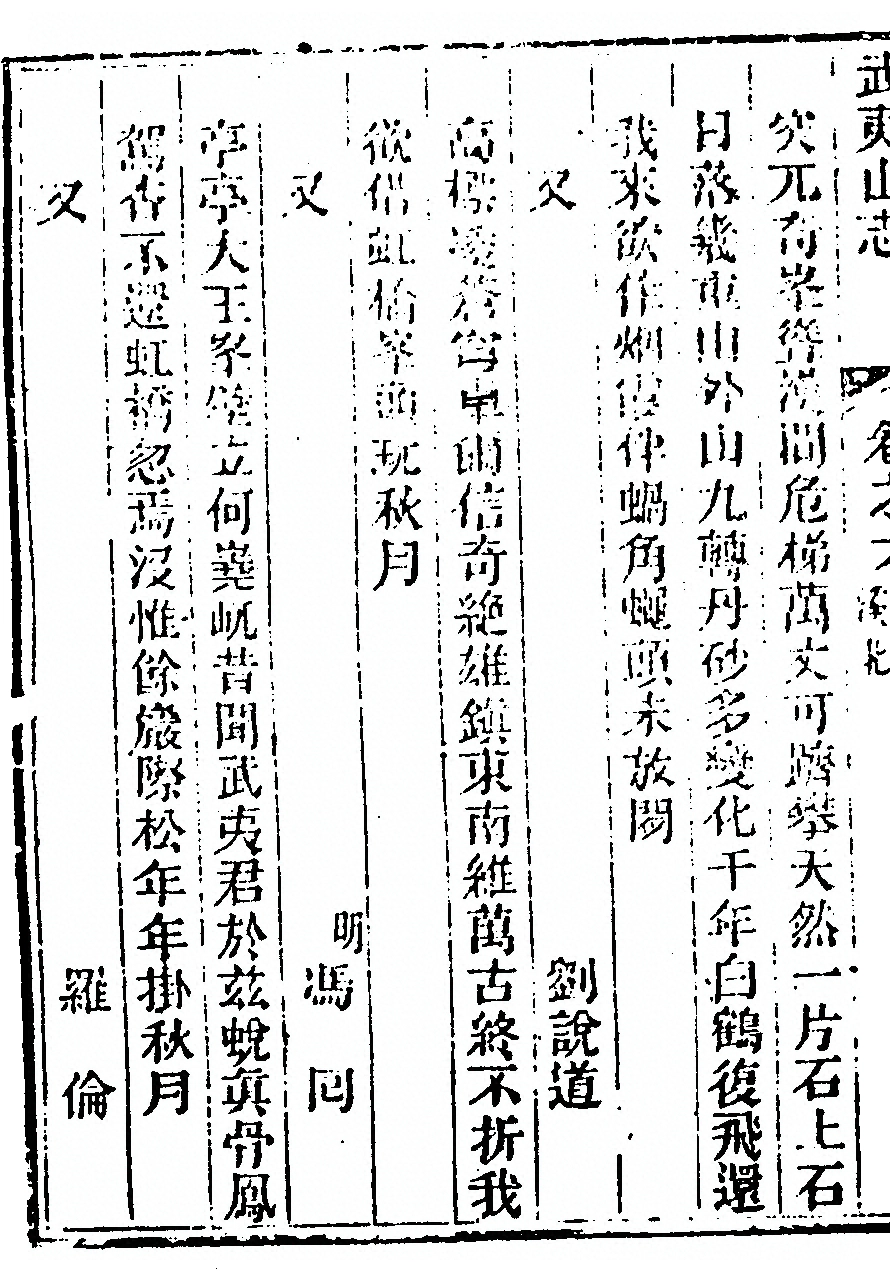 武夷山志 卷之
突兀奇峯聳漢間危梯萬丈可躋攀天然一片石上石
日落幾重山外山九轉丹砂多變化千年白鶴復飛還
我來欲作烟霞伴蝸角蠅頭未放閒
又 劉說道
高標凌蒼穹卓爾信奇絶雄鎮東南維萬古終不折我
欲侶虹橋峯頭玩秋月
又 明馮冋
亭亭大王峯壁立何嶤屼昔聞武夷君於兹蛻真骨鳳
駕杳不還虹橋忽焉没惟餘巖際松年年掛秋月
又 羅倫